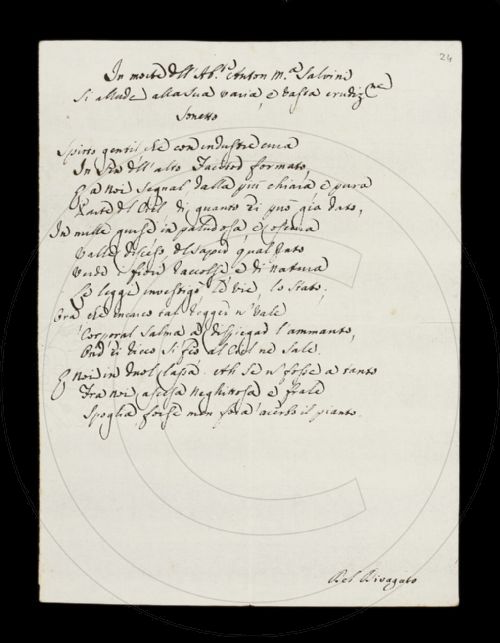 24
In morte dell' Ab.te Anton M.a Salvini
Si allude alla sua varia, e vasta erudiz.ne
Sonetto
Spirto gentil, che con industre cura
In Sen dell' alto formato,
E a noi Segnal dalla più chiara e pura
Parte del Ciel di quanto ei può già dato,
In questa paludosa, e oscura
Valle disceso del saper qual
fiori raccolse, e di Natura
Le leggi investigò le vie, lo Stato.
Ora che regger n' vale
Corporal Salma a l'ammanto,
Ond' ei Si feo al Ciel ne Sale.
E noi in duol lassa. Ah Se n' fosse a tanto
Tra noi ascesa neghittosa e frale
Spoglia, forse men fora acerbo il pianto.
Del Divagato